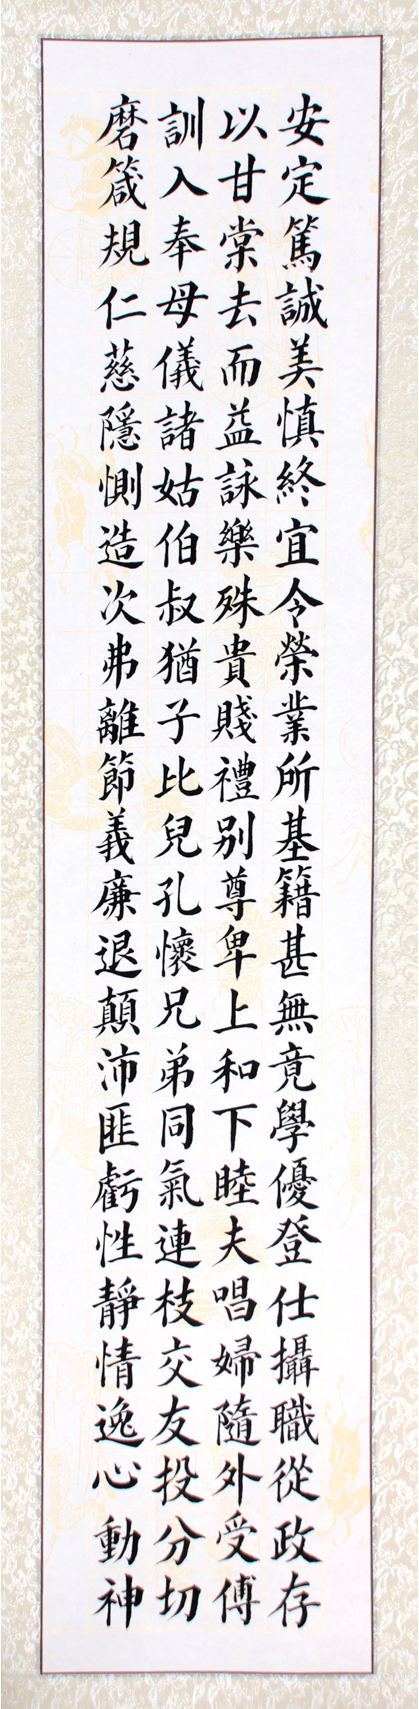 安定篤誠美慎終宜令榮業所基籍甚無竟學優登仕攝職從政存
以甘棠去而益詠樂殊貴賤禮別尊卑上和下睦夫唱婦隨外受傅
訓入奉母儀諸姑伯叔猶子比兒孔懷兄弟同氣連枝交友投分切
磨箴規仁慈隱惻造次弗離節義廉退顛沛匪虧性靜情逸心動神